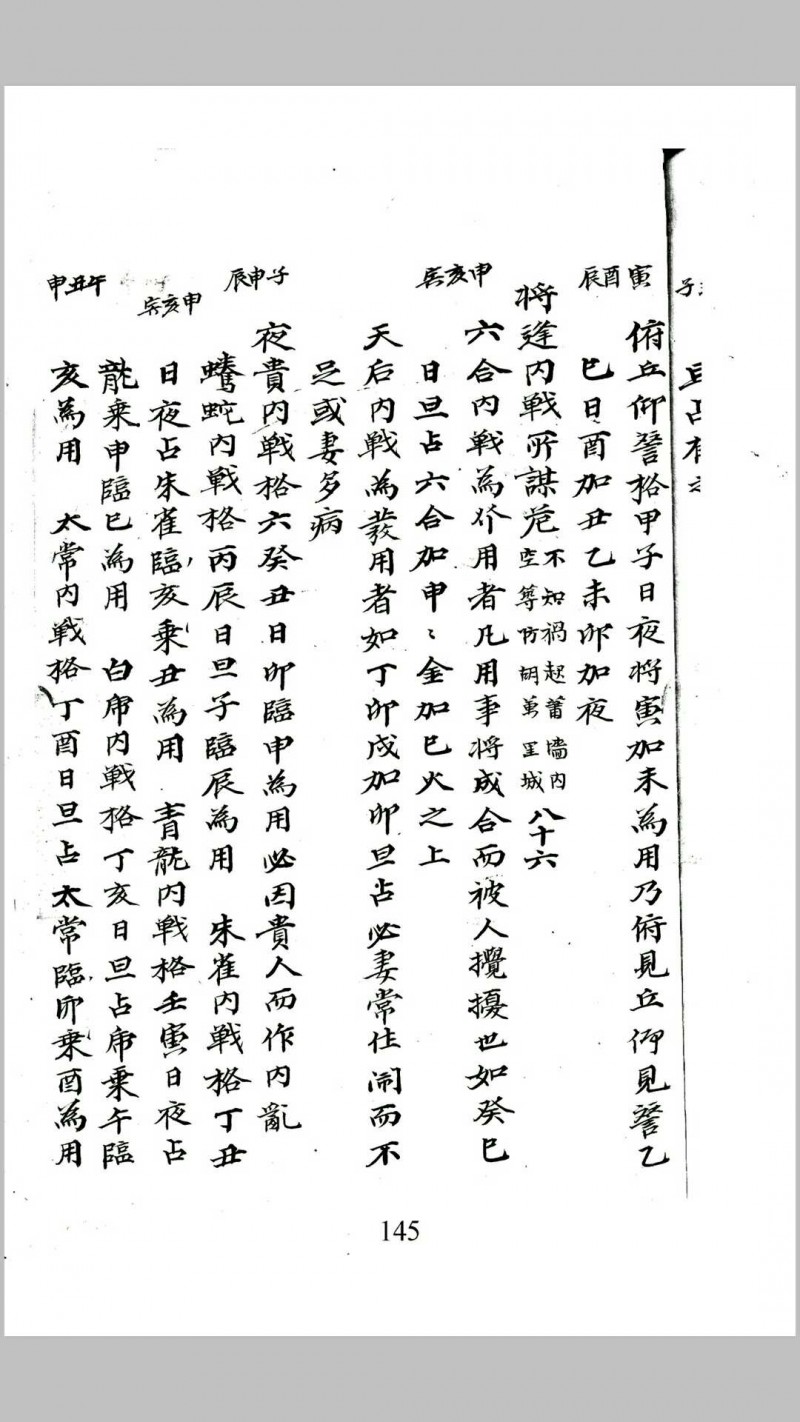 寅酉辰
俯丘仰讐格甲子日夜将寅加未為用乃俯見丘仰見讐乙
巳日酉加丑乙未卯加夜
将逢内戦所謀危 不知禍起蕭墻内 空築防胡萬里城 八十六
申亥寅
六合内戦為介用者凡用事将成合而被人攪擾也如癸巳
日旦占六合加申〻金加巳火之上
天后内戦為發用者如丁卯戌加卯旦占必妻常住閙而不
足或妻多病
子申辰
夜貴内戦格六癸丑日卯臨申為用必因貴人而作内亂
螣蛇内戦格丙辰日旦子臨辰為用 朱雀内戦格丁丑
申亥寅
日夜占朱雀臨亥乘丑為用 青龍内戦格壬寅日夜占
龍乘申臨巳為用 白虎内戦格丁亥日旦占虎乘午臨
午丑申
亥為用 太常内戦格丁酉日旦占太常臨卯乘酉為用
145